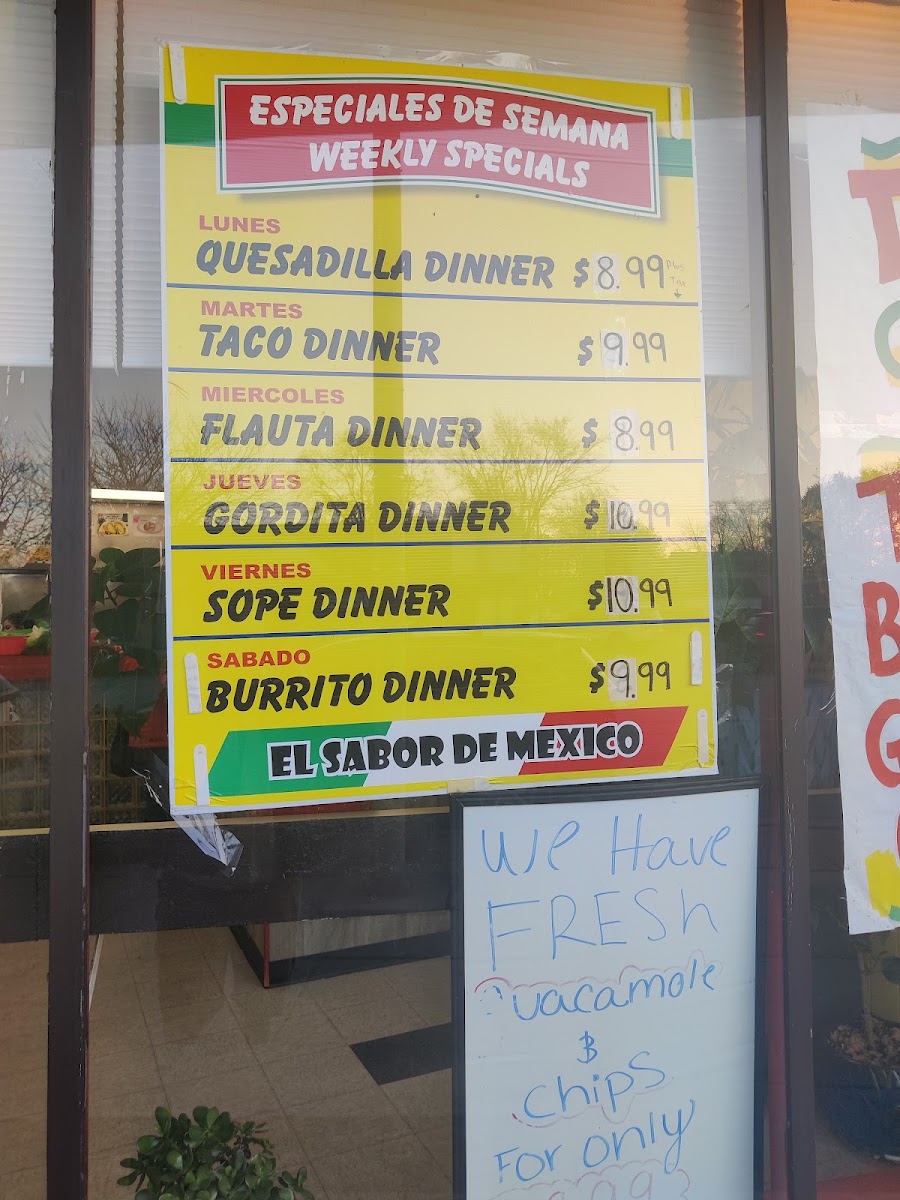 ESPECIALES DE SEMANA
WEEKLY SPECIALS
LUNES
QUESADILLA DINNER $8.99 Plus Tax
MARTES
TACO DINNER $9.99
MIERCOLES
FLAUTA DINNER $8.99
JUEVES
GORDITA DINNER $10.99
VIERNES
SOPE DINNER $10.99
SABADO
BURRITO DINNER $9.99
EL SABOR DE MEXICO
We Have
FRESH
Guacamole
&
chips
For only